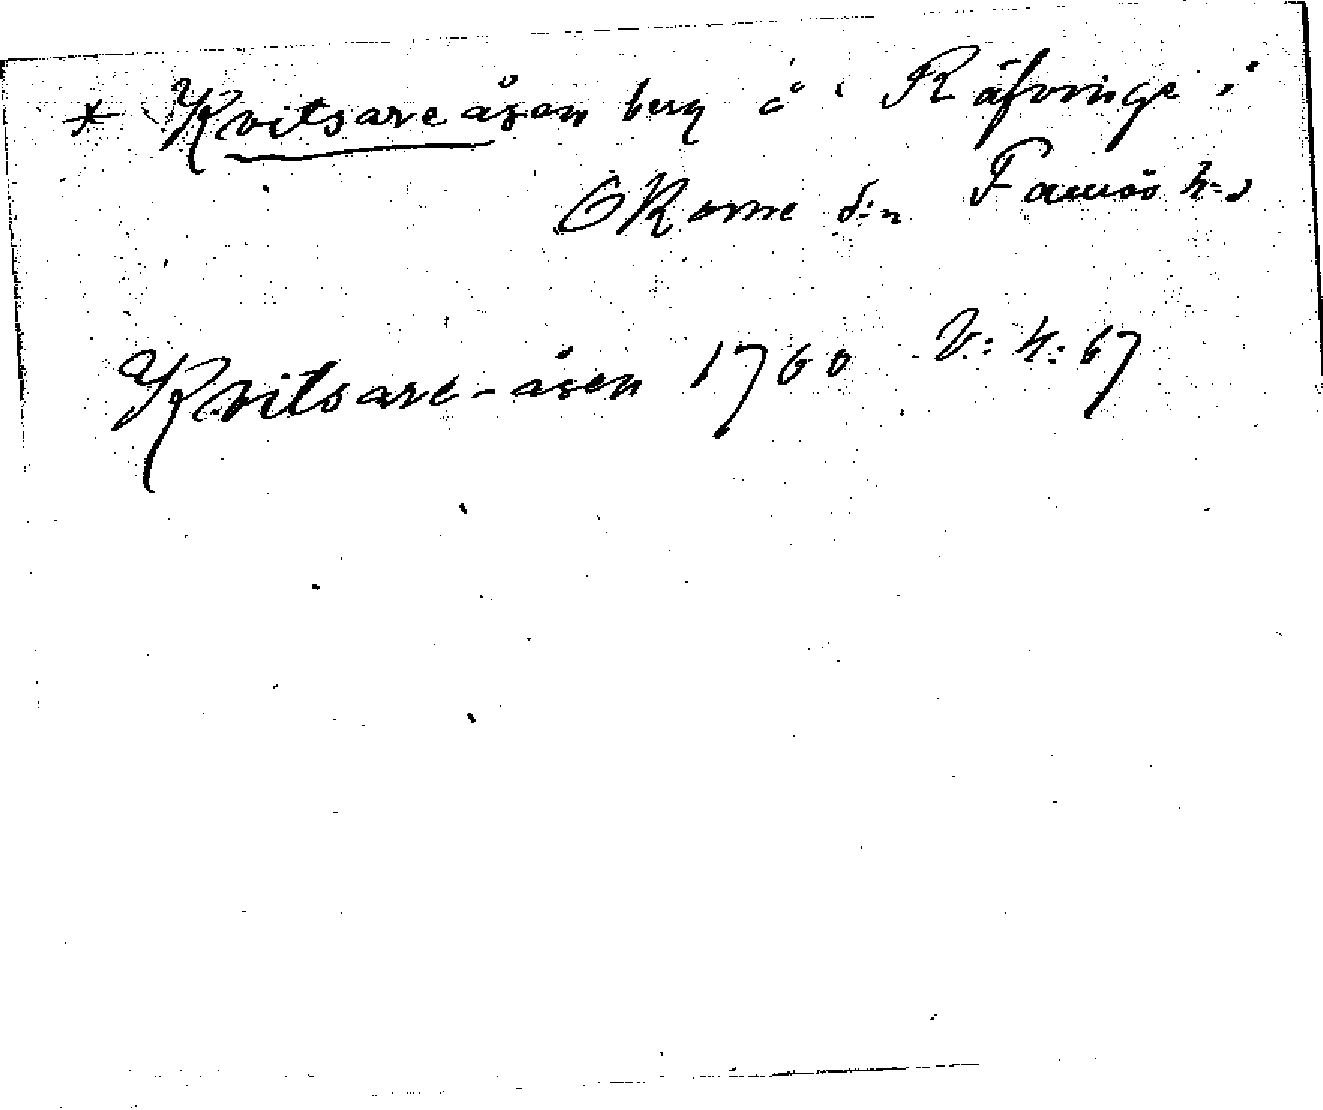 * Kvitsareåsen berg å Räfvinge i
Okome s:n Faurås h:d
Kvitsare-åsen 1760 V: 4: 67